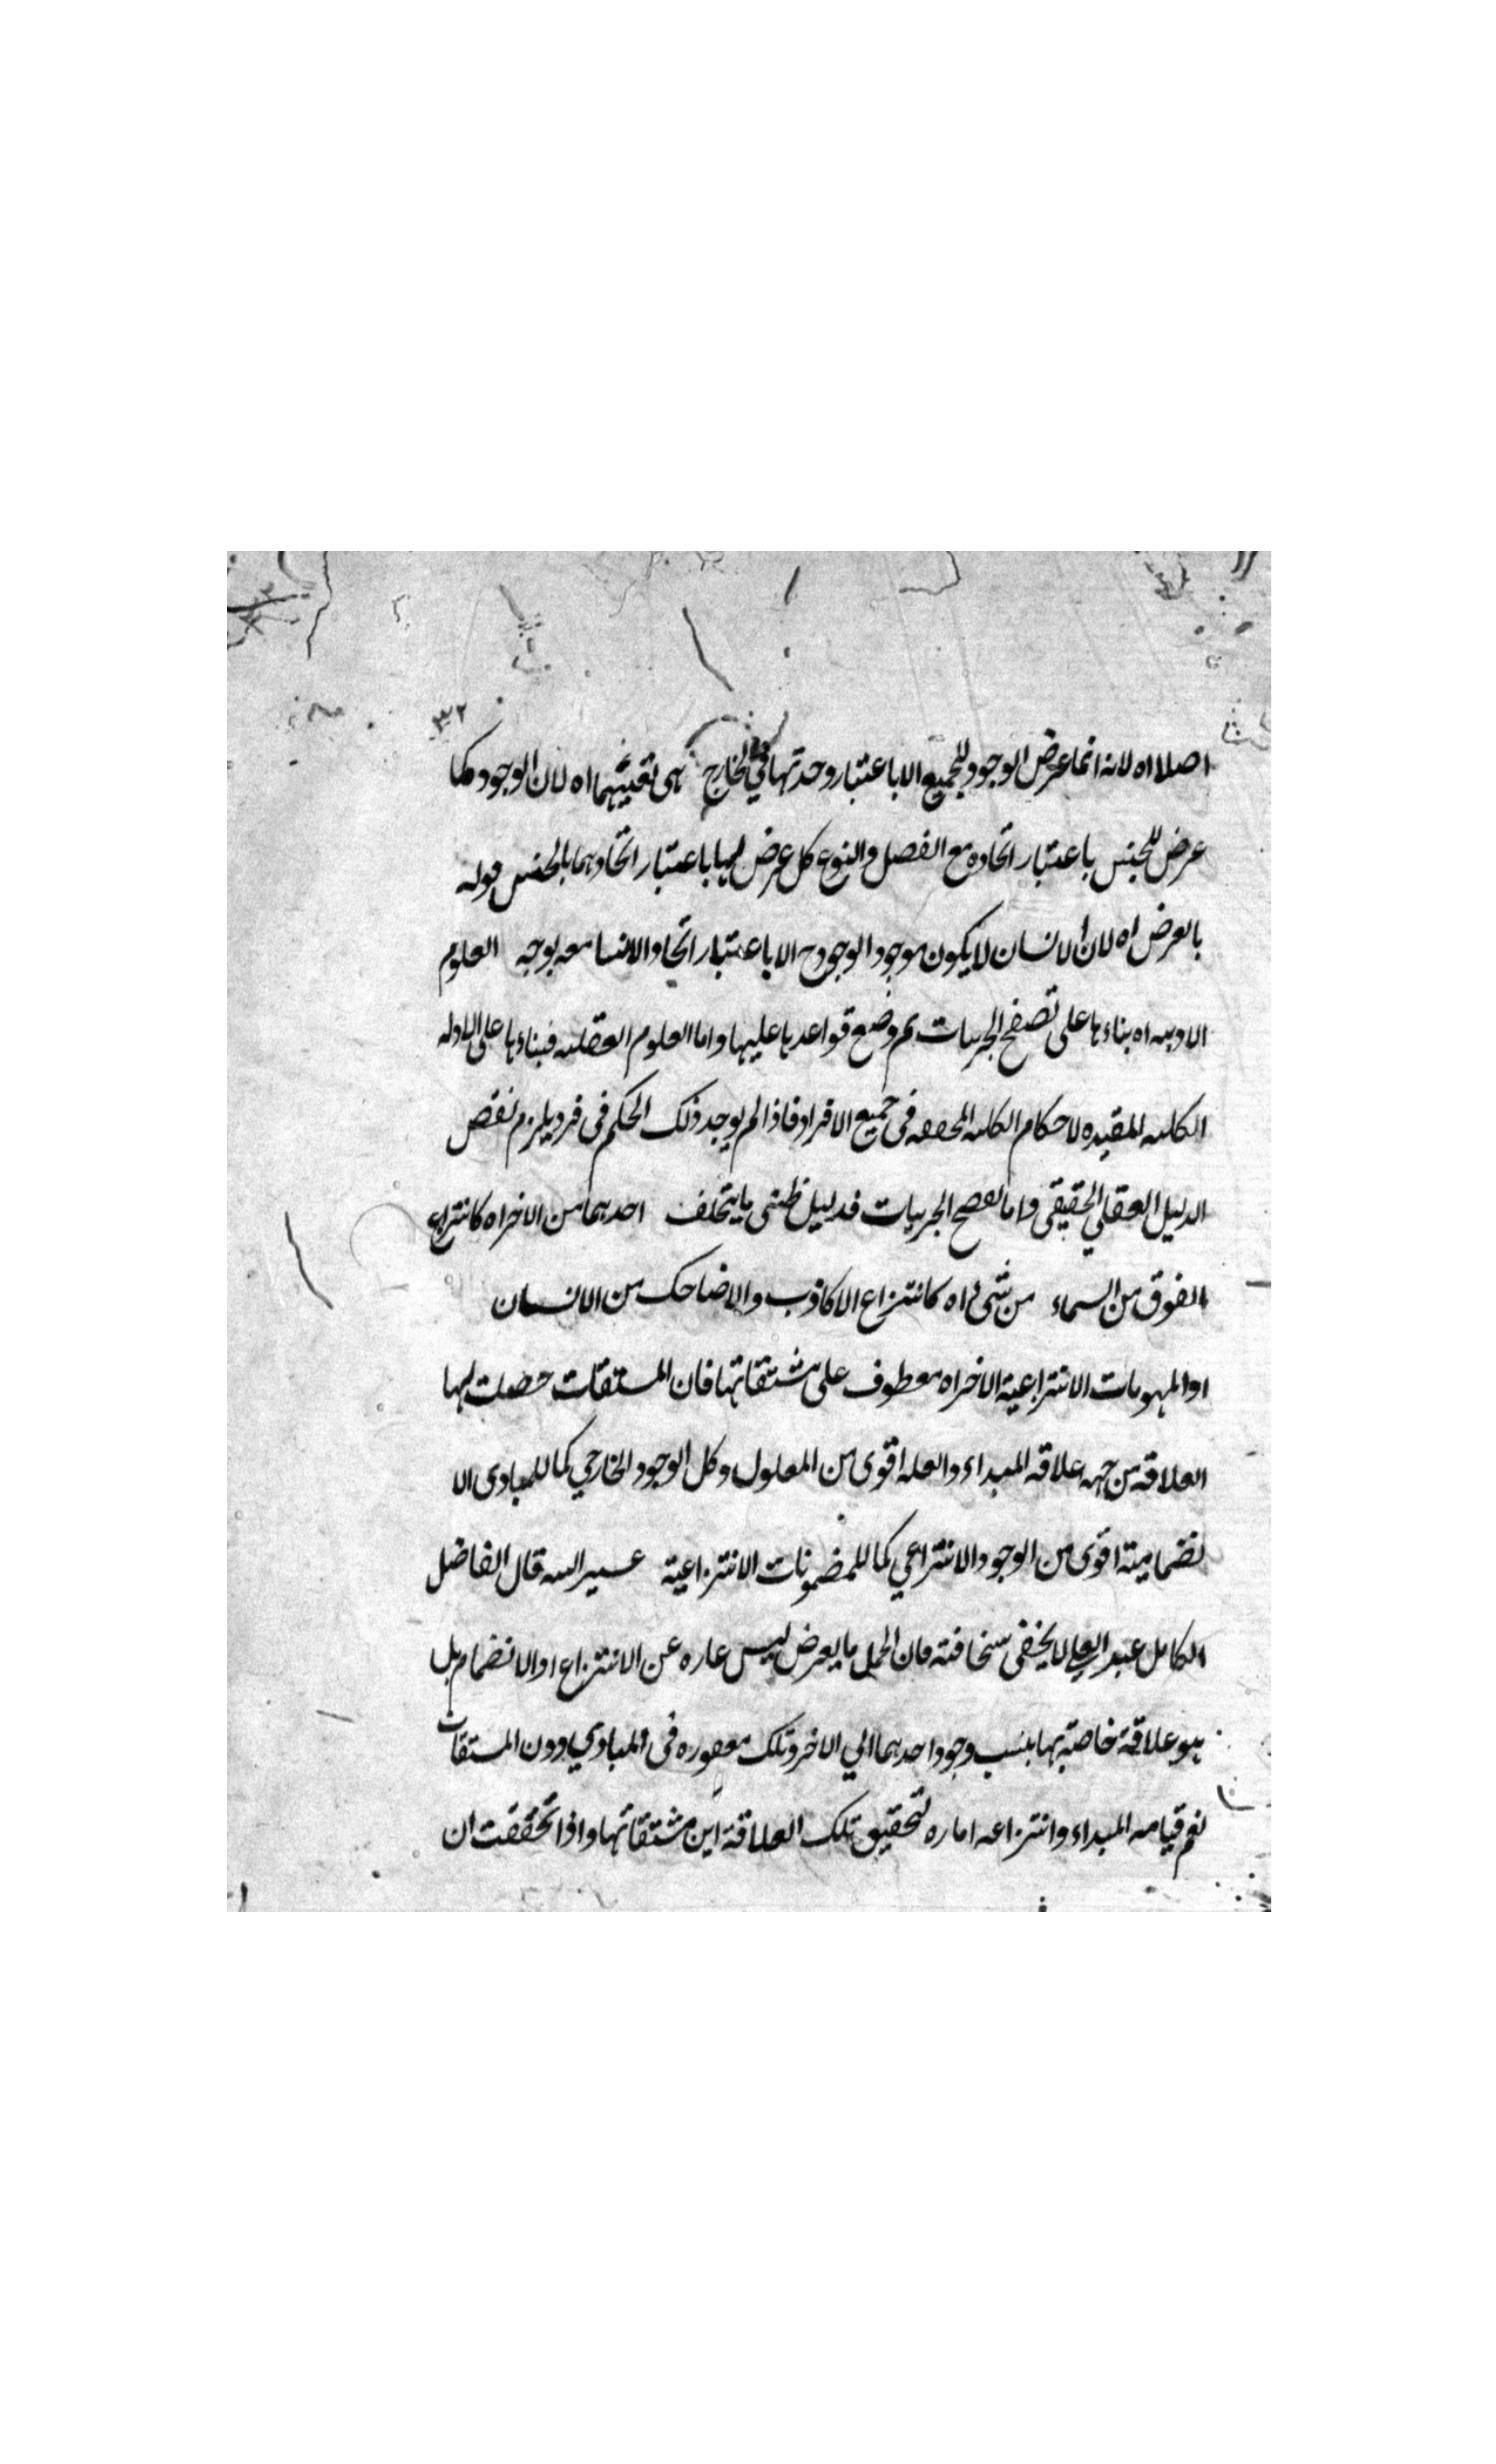 ٣٢
اصلا اه لانه انما عرض الوجود للجميع الا باعتبار وحدتها في الخارج هى تعينهما اه لان الوجود كما
عرض للجنس باعتبار اتحاده مع الفصل والنوع كل عرض لهما باعتبار اتحادهما بالجنس قوله
بالعرض اه لان الانسان لا يكون موجود الوجود ح الا باعتبار اتحاد الانسا معه بوجه العلوم
الادبيه اه بناءها على تصفح الجزئيات ثم وضع قواعدها عليها واما العلوم العقليه فبناءها على الادله
الكليه المقيده لاحكام الكليه المحققه في جميع الافراد فاذا لم يوجد ذلك الحكم في فرد يلزم نقض
الدليل العقلي الحقيقي واما تصفح الجزئيات فدليل ظنى ما يتخلف احدهما من الاخر اه كانتزاع
الفوق من السماء من شئ اه كانتزاع الاكاذب والاضاحك من الانسان
او المفهومات الانتزاعية الاخر اه معطوف على مشتقاتها فان المشتقات حصلت لها
العلاقه من جهه علاقه المبداء والعله اقوى من المعلول وكل الوجود الخارجي كما للمبادى الا
نضمامية اقوى من الوجود الانتزاعي كما للمضمونات الانتزاعية عسير اليه قال الفاضل
الكامل عبد العلي لا يخفى سخافته فان الحمل بالعرض ليس عباره عن الانتزاع او الانضمام بل
هو علاقة خاصة بها ينسب وجود احدهما الي الاخر وتلك مفقوده في المبادي دون المشتقات
نعم قيامه المبداء وانتزاعه اماره لتحقيق تلك العلاقة اين مشتقاتها واذا تحققت ان